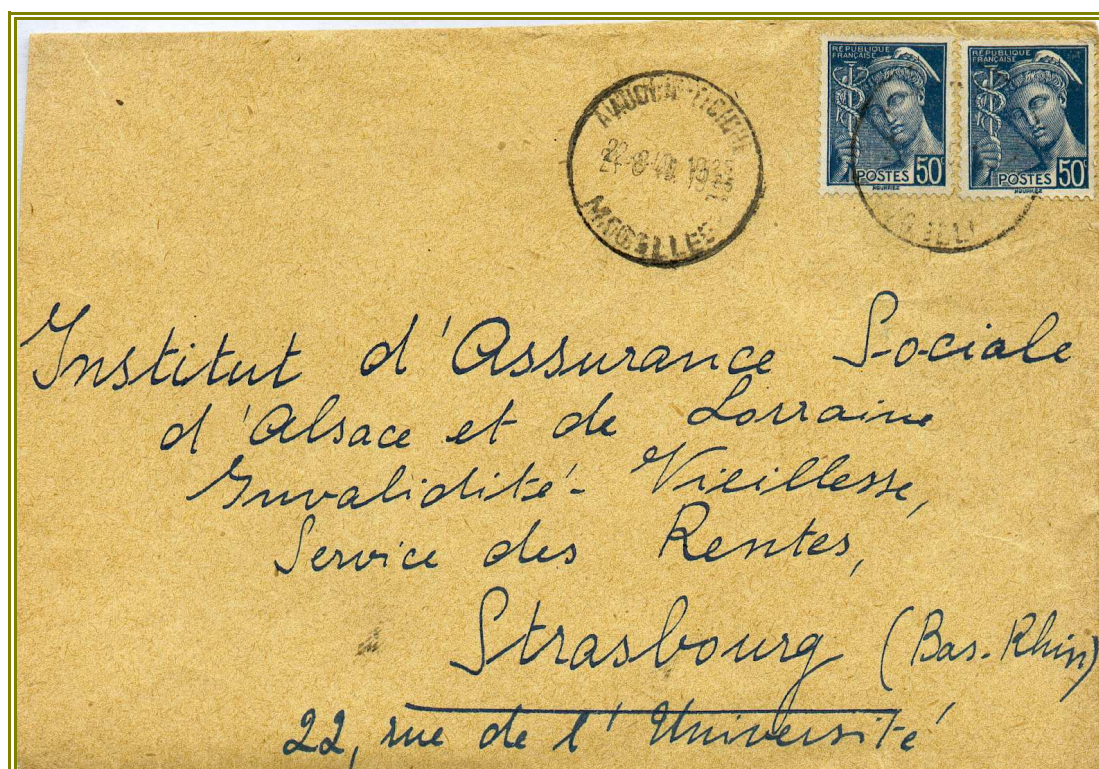 RÉPUBLIQUE
FRANÇAISE
POSTES 50c
RÉPUBLIQUE
FRANÇAISE
POSTES 50c
MOSELLE
Institut d'Assurance Sociale
d'Alsace et de Lorraine
Invalidité - Vieillesse,
Service des Rentes,
Strasbourg (Bas-Rhin)
22, rue de l'Université